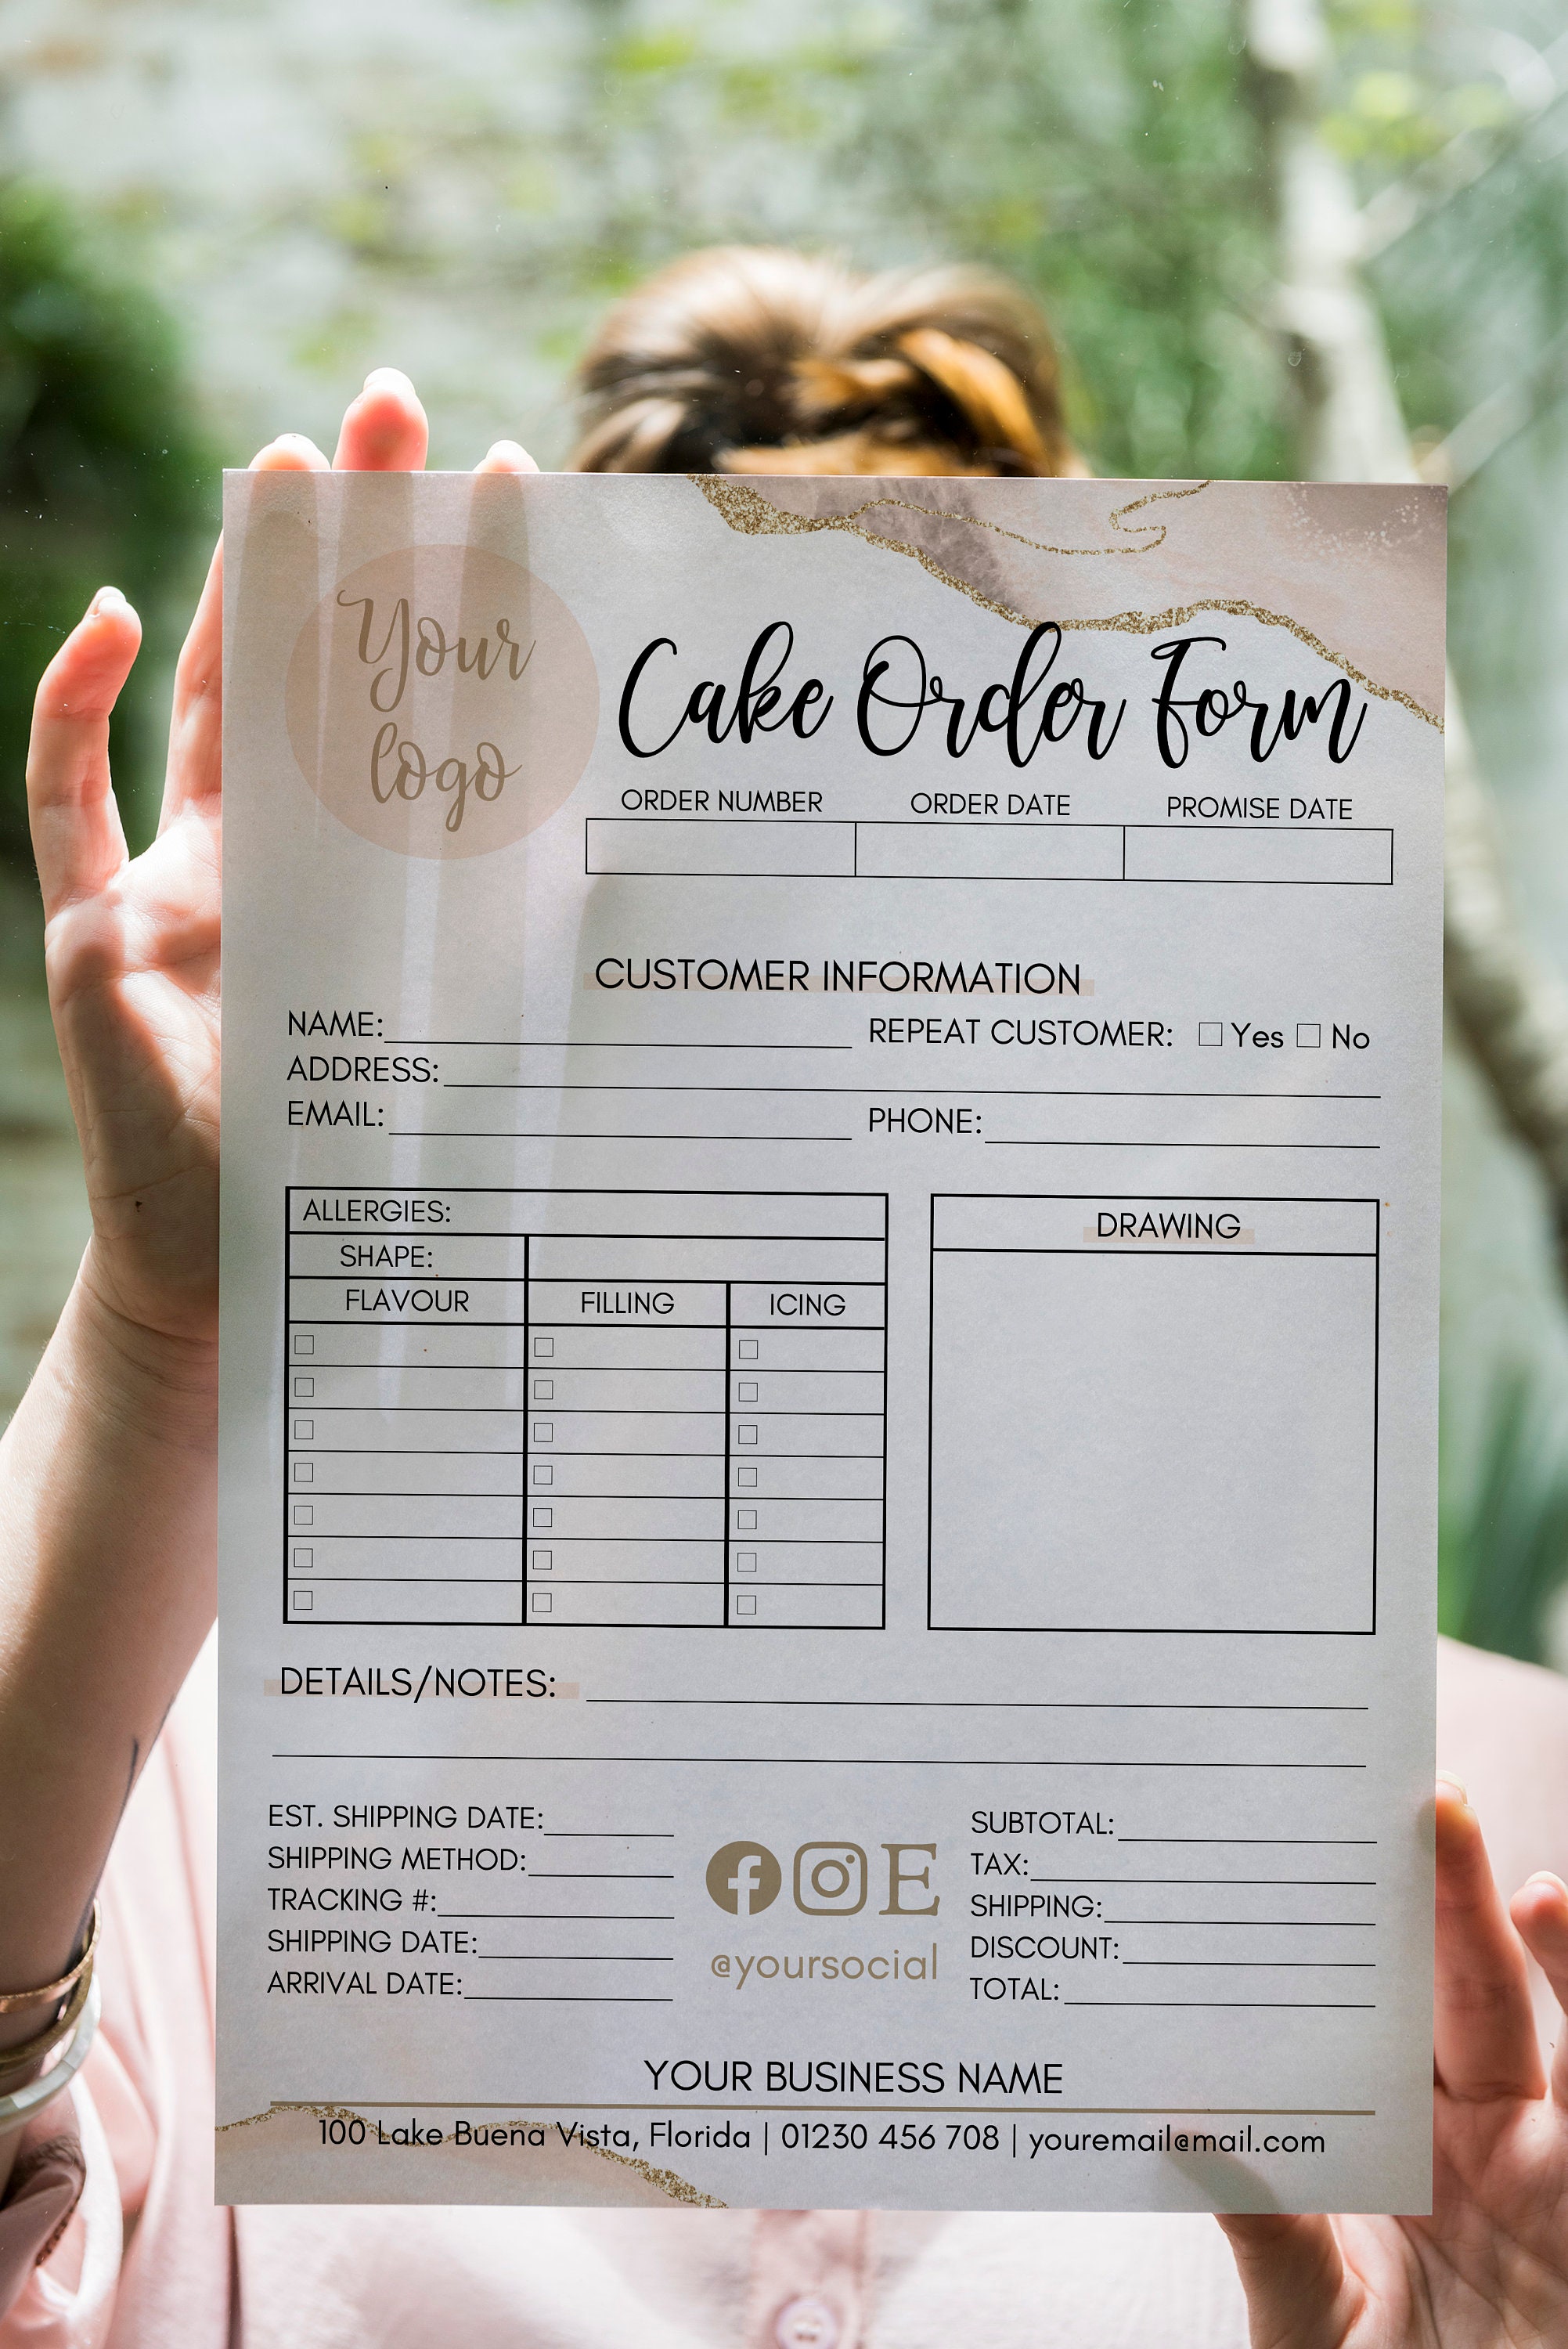 Your
logo
Cake Order Form
ORDER NUMBER ORDER DATE PROMISE DATE
CUSTOMER INFORMATION
NAME: REPEAT CUSTOMER: ☐ Yes ☐ No
ADDRESS:
EMAIL: PHONE:
ALLERGIES:
SHAPE:
FLAVOUR FILLING ICING
DRAWING
DETAILS/NOTES:
EST. SHIPPING DATE:
SHIPPING METHOD:
TRACKING #:
SHIPPING DATE:
ARRIVAL DATE:
E
@yoursocial
SUBTOTAL:
TAX:
SHIPPING:
DISCOUNT:
TOTAL:
YOUR BUSINESS NAME
100 Lake Buena Vista, Florida | 01230 456 708 | youremail@mail.com